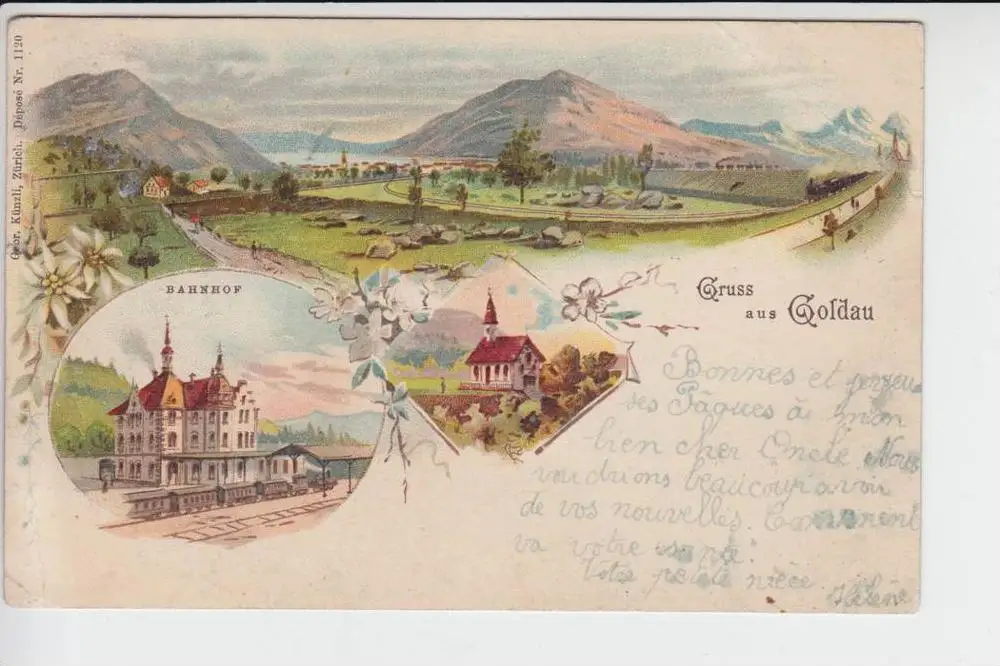 Gebr. Künzli, Zürich. Déposé Nr. 1120
BAHNHOF
Gruss
aus Goldau
Bonnes et
ses Pâques à mon
bien cher Oncle Nous
voudrions beaucoup avoir
de vos nouvelles. Comment
va votre santé?
Votre petite nièce
Hélène